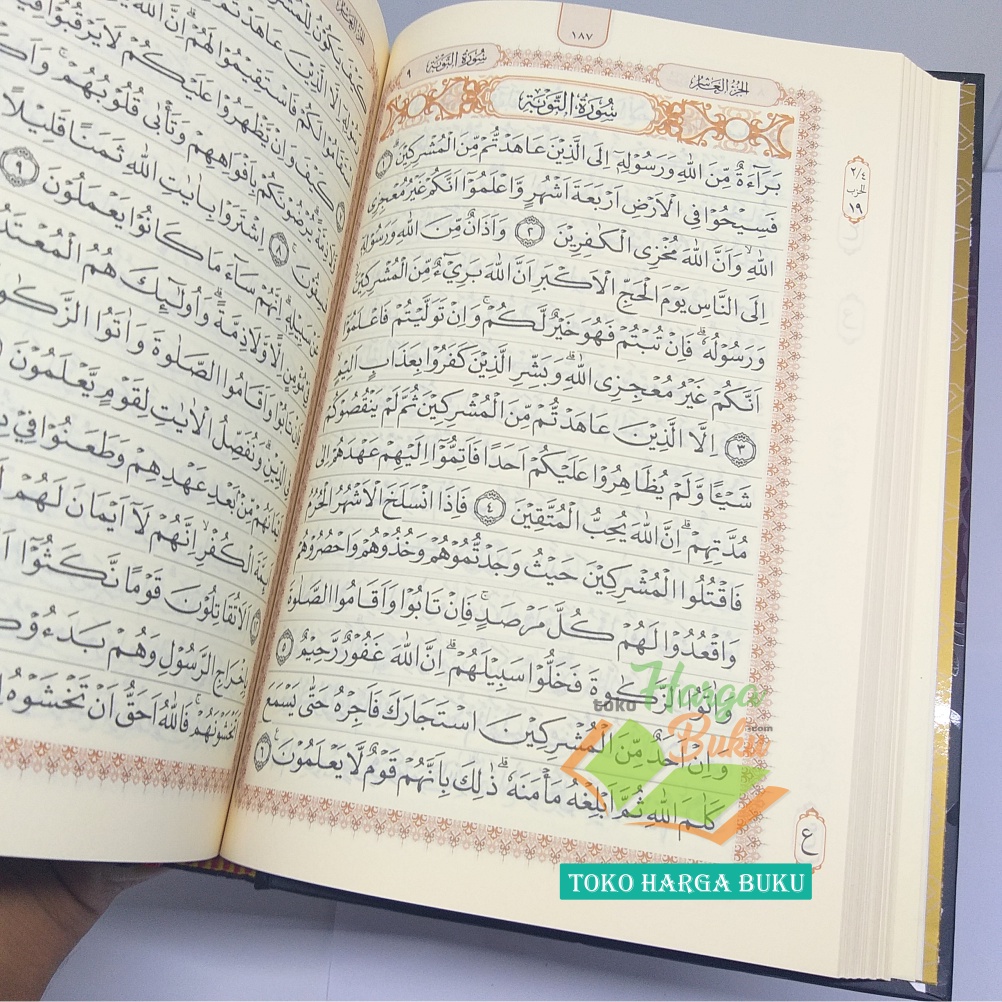 ١٨٧
سُوْرَةُ التَّوْبَةِ ٩
الجزء العاشر
سُوْرَةُ التَّوْبَةِ
بَرَاۤءَةٌ مِّنَ اللّٰهِ وَرَسُوْلِهٖٓ اِلَى الَّذِيْنَ عَاهَدْتُّمْ مِّنَ الْمُشْرِكِيْنَۗ ١
فَسِيْحُوْا فِى الْاَرْضِ اَرْبَعَةَ اَشْهُرٍ وَّاعْلَمُوْٓا اَنَّكُمْ غَيْرُ مُعْجِزِى
اللّٰهِ ۙوَاَنَّ اللّٰهَ مُخْزِى الْكٰفِرِيْنَ ٢ وَاَذَانٌ مِّنَ اللّٰهِ وَرَسُوْلِهٖٓ
اِلَى النَّاسِ يَوْمَ الْحَجِّ الْاَكْبَرِ اَنَّ اللّٰهَ بَرِيْۤءٌ مِّنَ الْمُشْرِكِيْنَ ەۙ
وَرَسُوْلُهٗ ۗفَاِنْ تُبْتُمْ فَهُوَ خَيْرٌ لَّكُمْۚ وَاِنْ تَوَلَّيْتُمْ فَاعْلَمُوْٓا
اَنَّكُمْ غَيْرُ مُعْجِزِى اللّٰهِ ۗوَبَشِّرِ الَّذِيْنَ كَفَرُوْا بِعَذَابٍ اَلِيْمٍۙ
٣ اِلَّا الَّذِيْنَ عَاهَدْتُّمْ مِّنَ الْمُشْرِكِيْنَ ثُمَّ لَمْ يَنْقُصُوْكُمْ
شَيْـًٔا وَّلَمْ يُظَاهِرُوْا عَلَيْكُمْ اَحَدًا فَاَتِمُّوْٓا اِلَيْهِمْ عَهْدَهُمْ اِلٰى
مُدَّتِهِمْۗ اِنَّ اللّٰهَ يُحِبُّ الْمُتَّقِيْنَ ٤ فَاِذَا انْسَلَخَ الْاَشْهُرُ الْحُرُمُ
فَاقْتُلُوا الْمُشْرِكِيْنَ حَيْثُ وَجَدْتُّمُوْهُمْ وَخُذُوْهُمْ وَاحْصُرُوْهُمْ
وَاقْعُدُوْا لَهُمْ كُلَّ مَرْصَدٍۚ فَاِنْ تَابُوْا وَاَقَامُوا الصَّلٰوةَ
وَاٰتَوُا الزَّكٰوةَ فَخَلُّوْا سَبِيْلَهُمْۗ اِنَّ اللّٰهَ غَفُوْرٌ رَّحِيْمٌ ٥
وَاِنْ اَحَدٌ مِّنَ الْمُشْرِكِيْنَ اسْتَجَارَكَ فَاَجِرْهُ حَتّٰى يَسْمَعَ
كَلٰمَ اللّٰهِ ثُمَّ اَبْلِغْهُ مَأْمَنَهٗ ۗذٰلِكَ بِاَنَّهُمْ قَوْمٌ لَّا يَعْلَمُوْنَ ٦
٢/٤
الحزب
١٩
ع
toko
Harga
Buku
.com
TOKO HARGA BUKU
كَيْفَ يَكُوْنُ
اِلَّا الَّذِيْنَ عَاهَدْتُّمْ
اسْتَقَامُوْا لَكُمْ فَاسْتَقِيْمُوْا لَهُمْ ۗاِنَّ اللّٰهَ
كَيْفَ وَاِنْ يَّظْهَرُوْا عَلَيْكُمْ لَا يَرْقُبُوْا
وَّلَا ذِمَّةً يُرْضُوْنَكُمْ بِاَفْوَاهِهِمْ وَتَأْبٰى قُلُوْبُهُمْۚ
٨ اِشْتَرَوْا بِاٰيٰتِ اللّٰهِ ثَمَنًا قَلِيْلًا
سَبِيْلِهٖۗ اِنَّهُمْ سَاۤءَ مَا كَانُوْا يَعْمَلُوْنَ ٩
اِلًّا وَّلَا ذِمَّةً ۗوَاُولٰۤىِٕكَ هُمُ الْمُعْتَدُ
تَابُوْا وَاَقَامُوا الصَّلٰوةَ وَاٰتَوُا الزَّكٰو
الدِّيْنِ ۗوَنُفَصِّلُ الْاٰيٰتِ لِقَوْمٍ يَّعْلَمُوْنَ
اَيْمَانَهُمْ مِّنْۢ بَعْدِ عَهْدِهِمْ وَطَعَنُوْا فِيْ
الْكُفْرِۙ اِنَّهُمْ لَآ اَيْمَانَ لَهُمْ
١٢ اَلَا تُقَاتِلُوْنَ قَوْمًا نَّكَثُوْٓا
بِاِخْرَاجِ الرَّسُوْلِ وَهُمْ بَدَءُوْ
اَتَخْشَوْنَهُمْ ۚفَاللّٰهُ اَحَقُّ اَنْ تَخْشَوْهُ